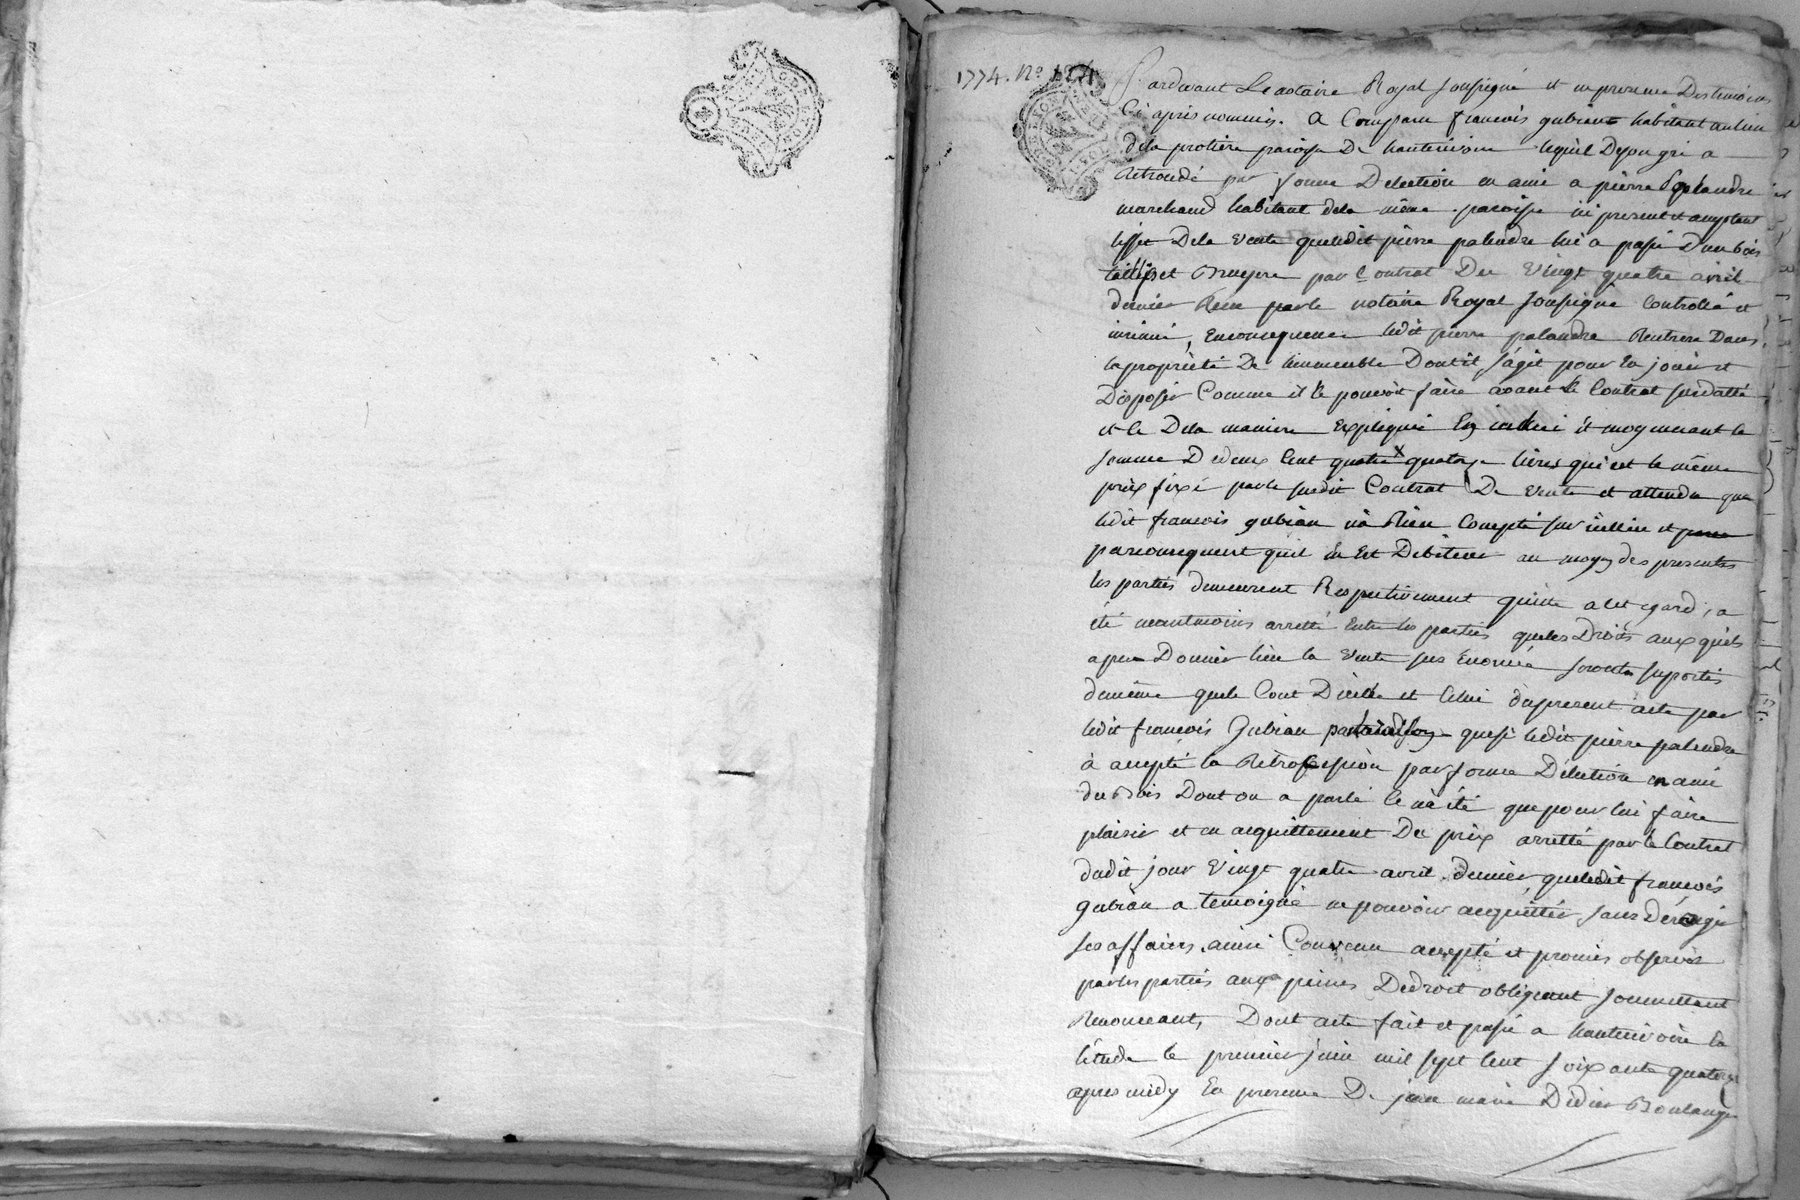 1774. No 124
Pardevant Le notaire Royal soussigné et en presence Des temoins
Ci après nommés. a Comparu francois gubian habitant au lieu
dela protiere paroisse De hauterivoire lequel De son gré a
Retrocedé par forme D'election en ami a pierre palandre
marchand habitant dela même paroisse ici present et acceptant
l'effet Dela Vente queledit pierre palandre lui a passé D'un bois
taillis et Bruyere par Contrat Du Vingt quatre avril
dernier Recu parle notaire Royal soussigné Controllé et
insinué, Enconsequence ledit pierre palandre Rentrera Dans
la proprieté De l'immeuble Dont il s'agit pour en jouir et
Disposer Comme il le pouvoit faire avant le Contrat susdatté
et ce Dela maniere Expliquée En icelui et moyennant la
somme Dedeux Cent quatre quatorze livres qui est le même
prix fixé parle susdit Contrat De Vente et attendu que
ledit francois gubian n'a Rien Compté sur icelui et
parconsequent qu'il en Est Débiteur au moyen des presentes
les parties demeurent Respectivement quitte a cet egard, a
été neantmoins arretté Entre les parties queles Droits auxquels
a pu Donner lieu la Vente sus Enoncée seront suportés
demême quele Cout D'icelle et Celui du present acte par
ledit francois Gubian que si ledit pierre palandre
à accepté la Rétrocession par forme D'election en ami
du Bois Dont on a parlé ce n'a été que pour lui faire
plaisir et en acquittement Du prix arretté par le Contrat
dudit jour Vingt quatre avril dernier, queledit francois
gubian a temoigné ne pouvoir acquitter sans Déranger
ses affaires, ainsi Convenu accepté et promis observer
parles parties aux peines Dedroit obligeant soumettant
Renonceant, Dont acte fait et passé a hauterivoire En
l'étude le premier juin mil sept Cent soixante quatorze
apres midy En presence De jean marie Didier Boulanger